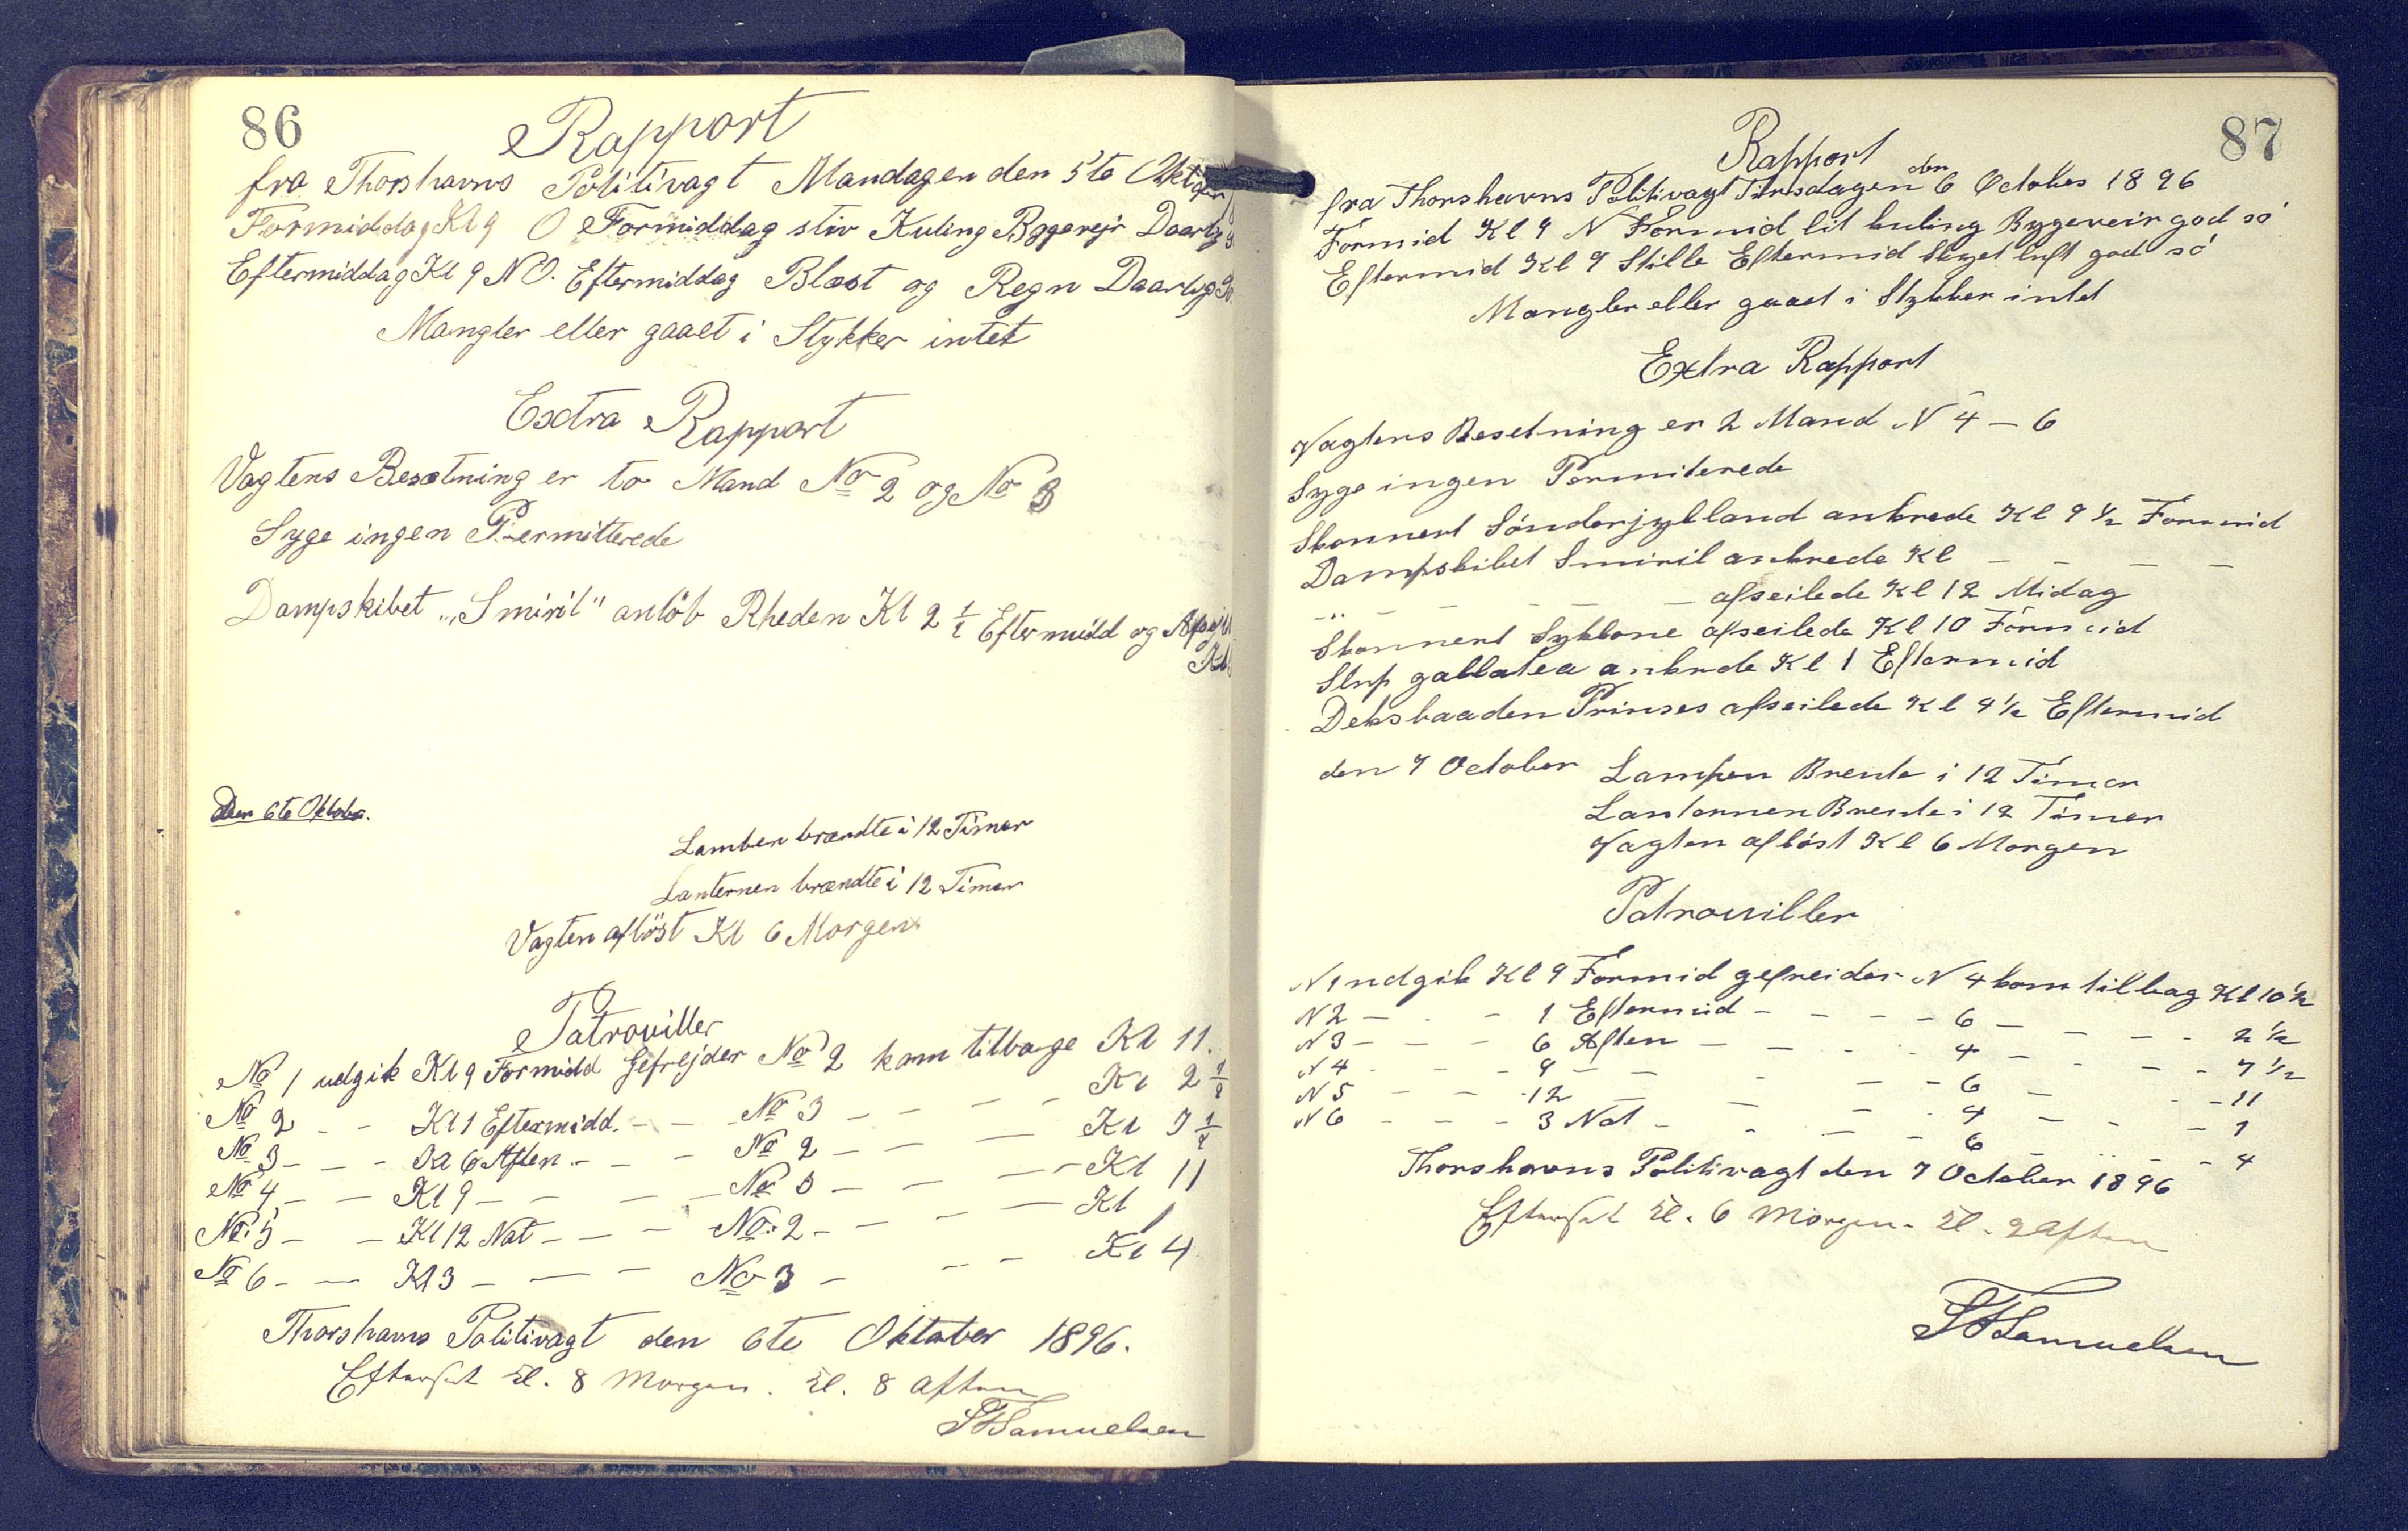 86
Rapport
fra Thorshavns Politivagt Mandagen den 5te Oktober
Formiddag Kl 9 O Formiddag stiv Kuling Bygevejr Daarlig
Eftermiddag Kl 9 NO. Eftermiddag Blæst og Regn Daarlig
Mangler eller gaaet i Stykker intet
Extra Rapport
Vagtens Besætning er to Mand No 2 og No 3
Syge ingen Permitterede
Dampskibet „Smiril" anlöb Rheden Kl 2 1/2 Eftermidd og
Kl
Den 6te Oktober.
Lamben brændte i 12 Timer
Lanternen brændte i 12 Timer
Vagten aflöst Kl 6 Morgen
Patrouiller
No 1 udgik Kl 9 Formidd Gefrejder No 2 kom tilbage Kl 11.
No 2 - - Kl 1 Eftermidd. - - No 3 - - - - Kl 2 1/2
No 3 - - - Kl 6 Aften. - - - No 2 - - - - Kl 7 1/2
No 4 - - Kl 9 - - - - No 3 - - - - Kl 11
No. 5 - - Kl 12 Nat - - - No. 2 - - - - Kl 1
No 6 - - Kl 3 - - - No 3 - - - Kl 4
Thorshavns Politivagt den 6te Oktober 1896.
Efterset Kl. 8 Morgen. Kl. 8 Aften
Samuelsen
87
Rapport
fra Thorshavns Politivagt Tirsdagen den 6 October 1896
Formid Kl 9 N Formid lit kuling Bygeveir god só
Eftermid Kl 9 Stille Eftermid Skyet luft god só
Mangler eller gaaet i Stykker intet
Extra Rapport
Vagtens Besetning er 2 Mand N 4 - 6
Syge ingen Permiterede
Skonnert Sónderjylland ankrede Kl 9 1/2 Formid
Dampskibet Smiril ankrede Kl - - - -
- " - - - - - afseilede Kl 12 Midag
Skonnert Syklone afseilede Kl 10 Formid
Slup gallatea ankrede Kl 1 Eftermid
Deksbaaden Prinses afseilede Kl 4 1/2 Eftermid
den 7 October Lampen Brente i 12 Timer
Lanternen Brente i 12 Timer
Vagten aflóst Kl 6 Morgen
Patrouiller
N 1 udgik Kl 9 Formid gefreider N 4 kom tilbag Kl 10 1/2
N 2 - - - 1 Eftermid - - - - 6 - - - - 2 1/2
N 3 - - - 6 Aften - - - - 4 - - - - 7 1/2
N 4 - - - 9 - - - - 6 - - - - 11
N 5 - - - 12 - - - - 4 - - - - 1
N 6 - - - 3 Nat - - - - 6 - - - - 4
Thorshavns Politivagt den 7 October 1896
Efterset Kl. 6 Morgen. Kl. 9 Aften
Samuelsen